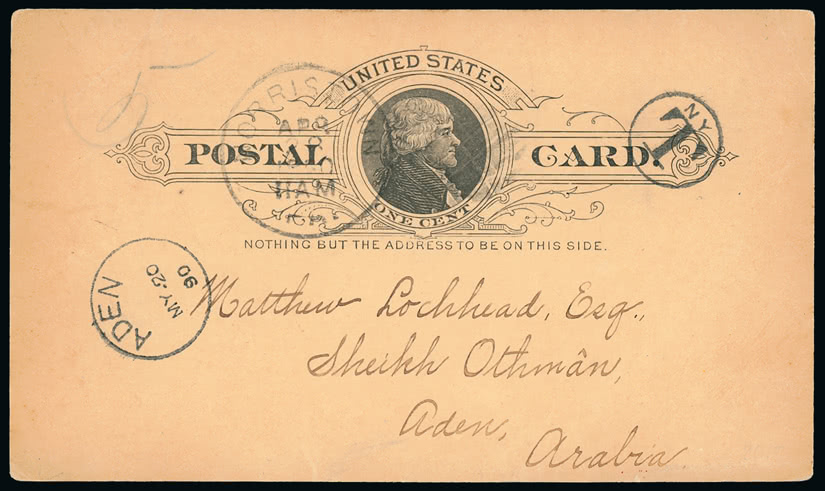 UNITED STATES
POSTAL CARD.
ONE CENT
NOTHING BUT THE ADDRESS TO BE ON THIS SIDE.
APR
11AM
NY
T
5
ADEN
MY.20
90
Matthew Lochhead, Esq.,
Sheikh Othmân,
Aden,
Arabia.